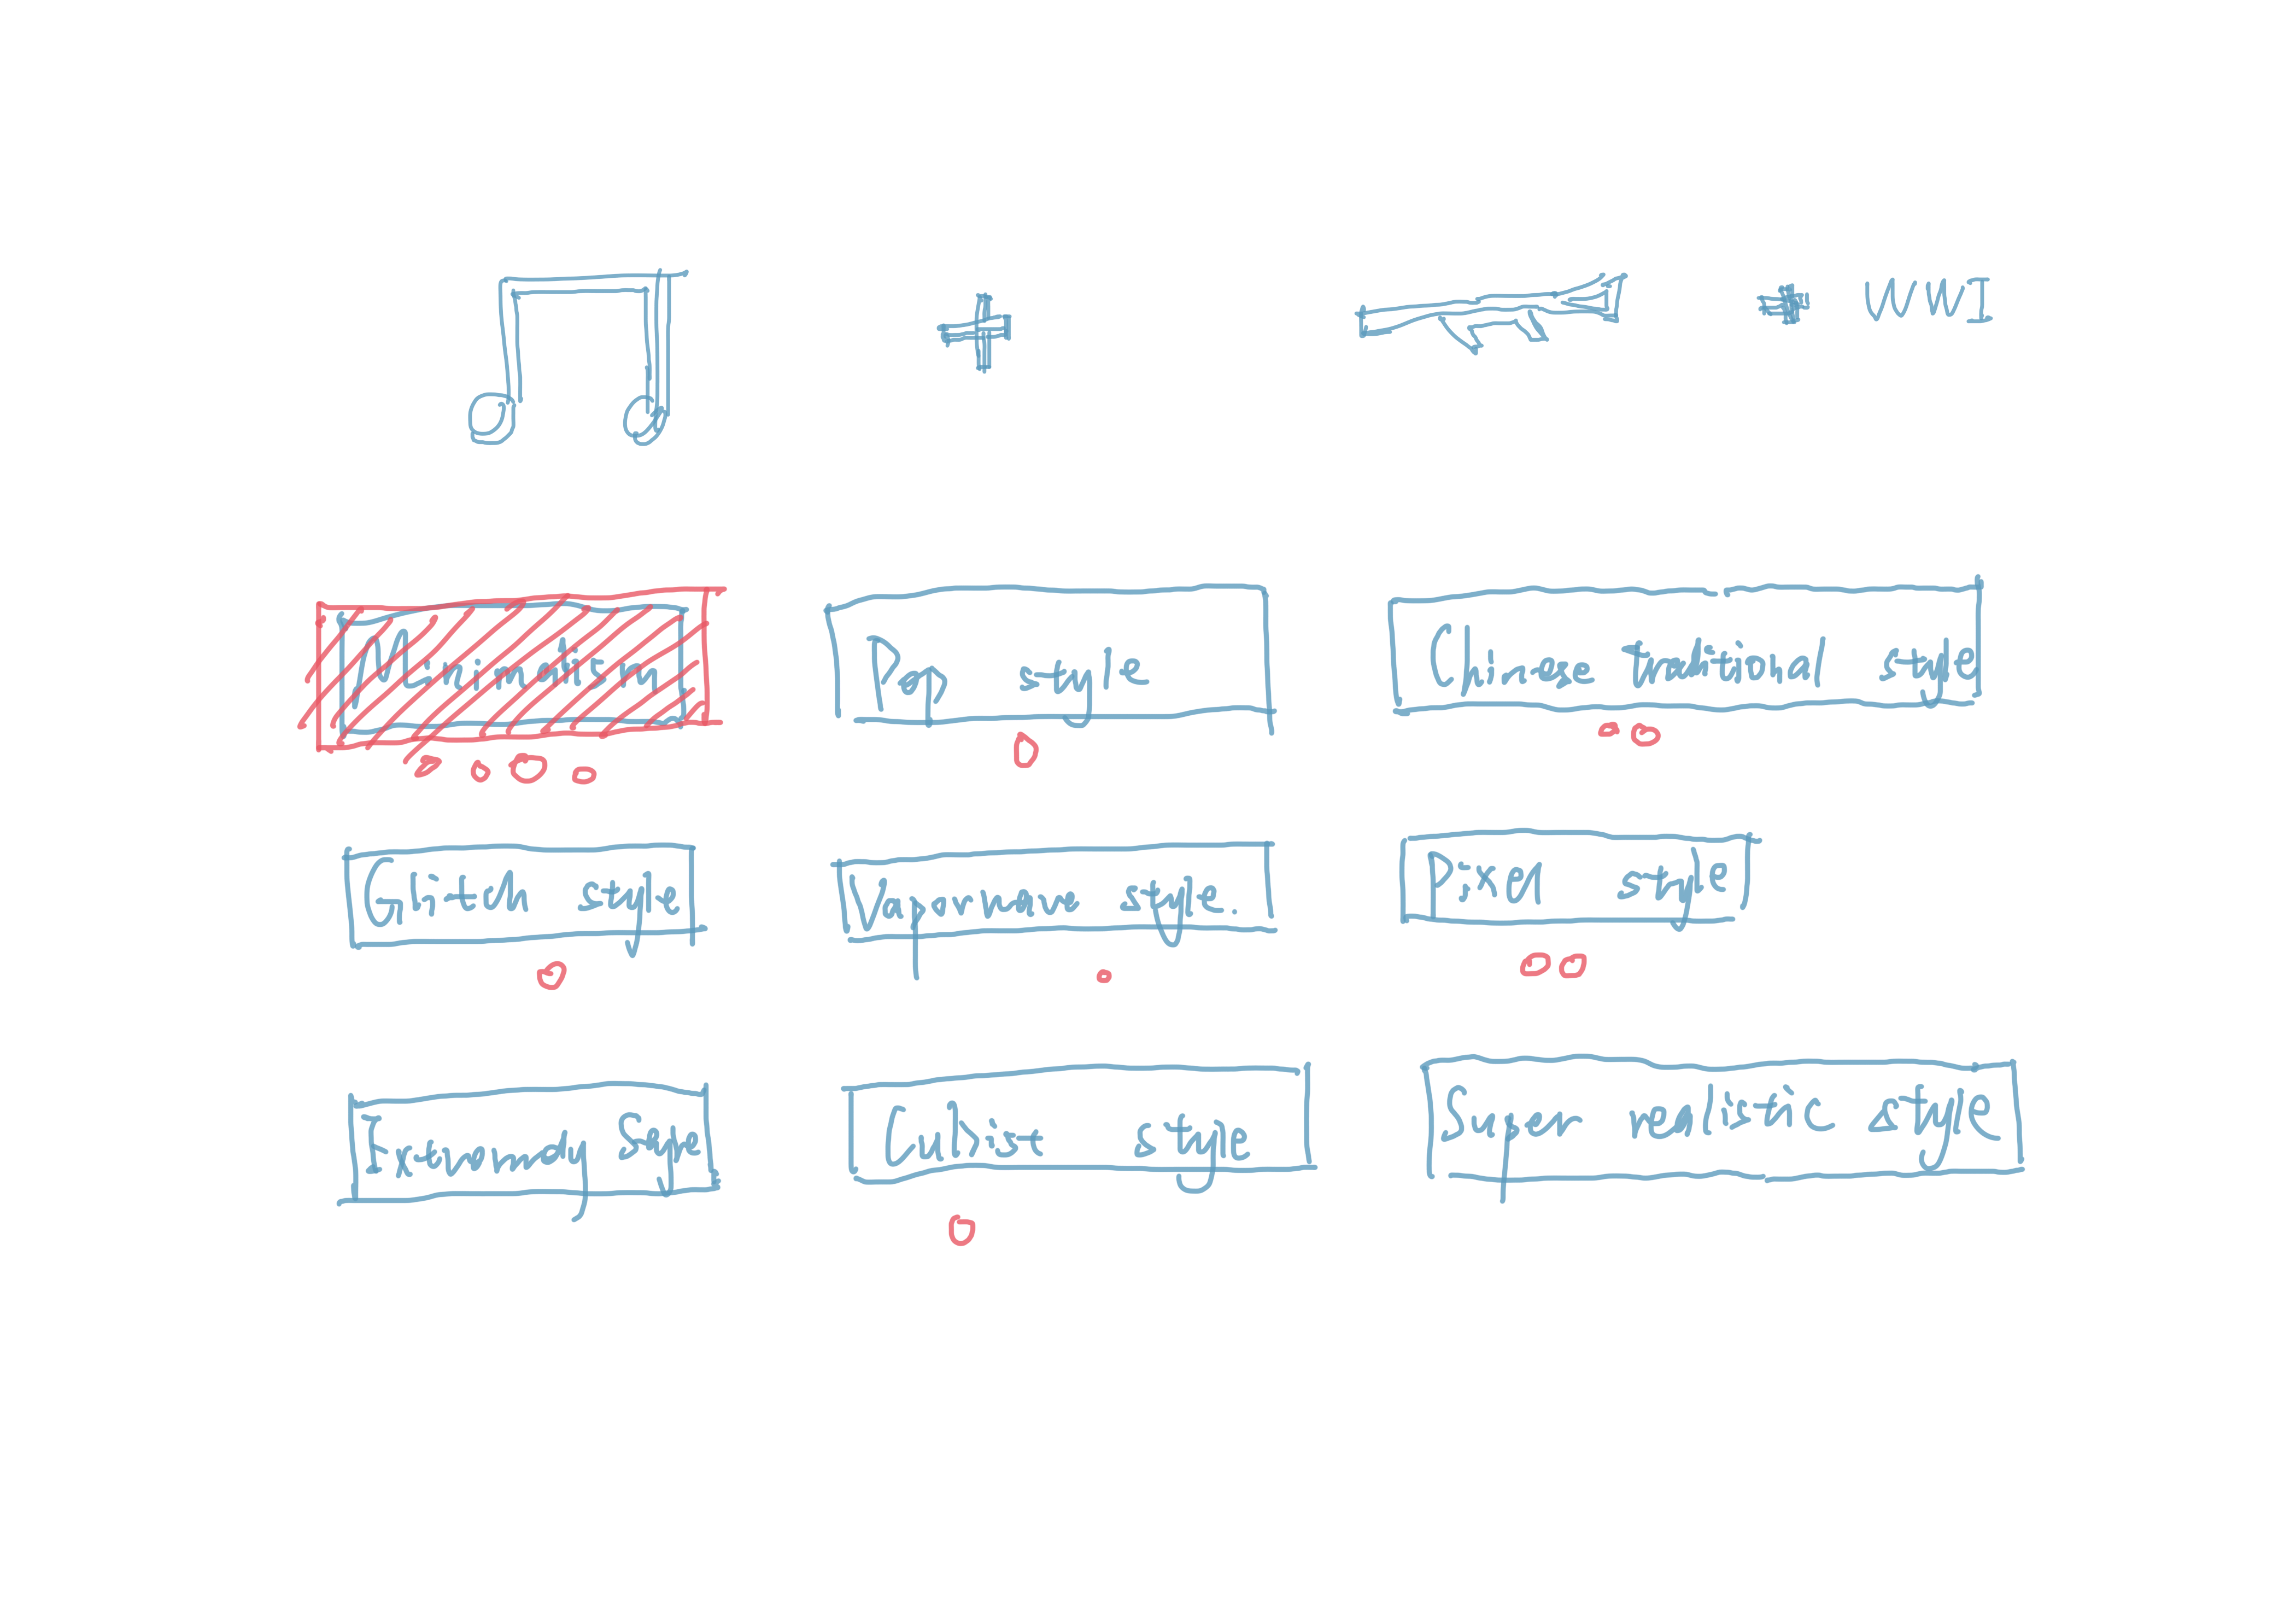 WWI
Minimalism
Pop style
Chinese traditional style
Glitch style
Vaporwave style.
Pixel style
Cubist style
Super realistic style